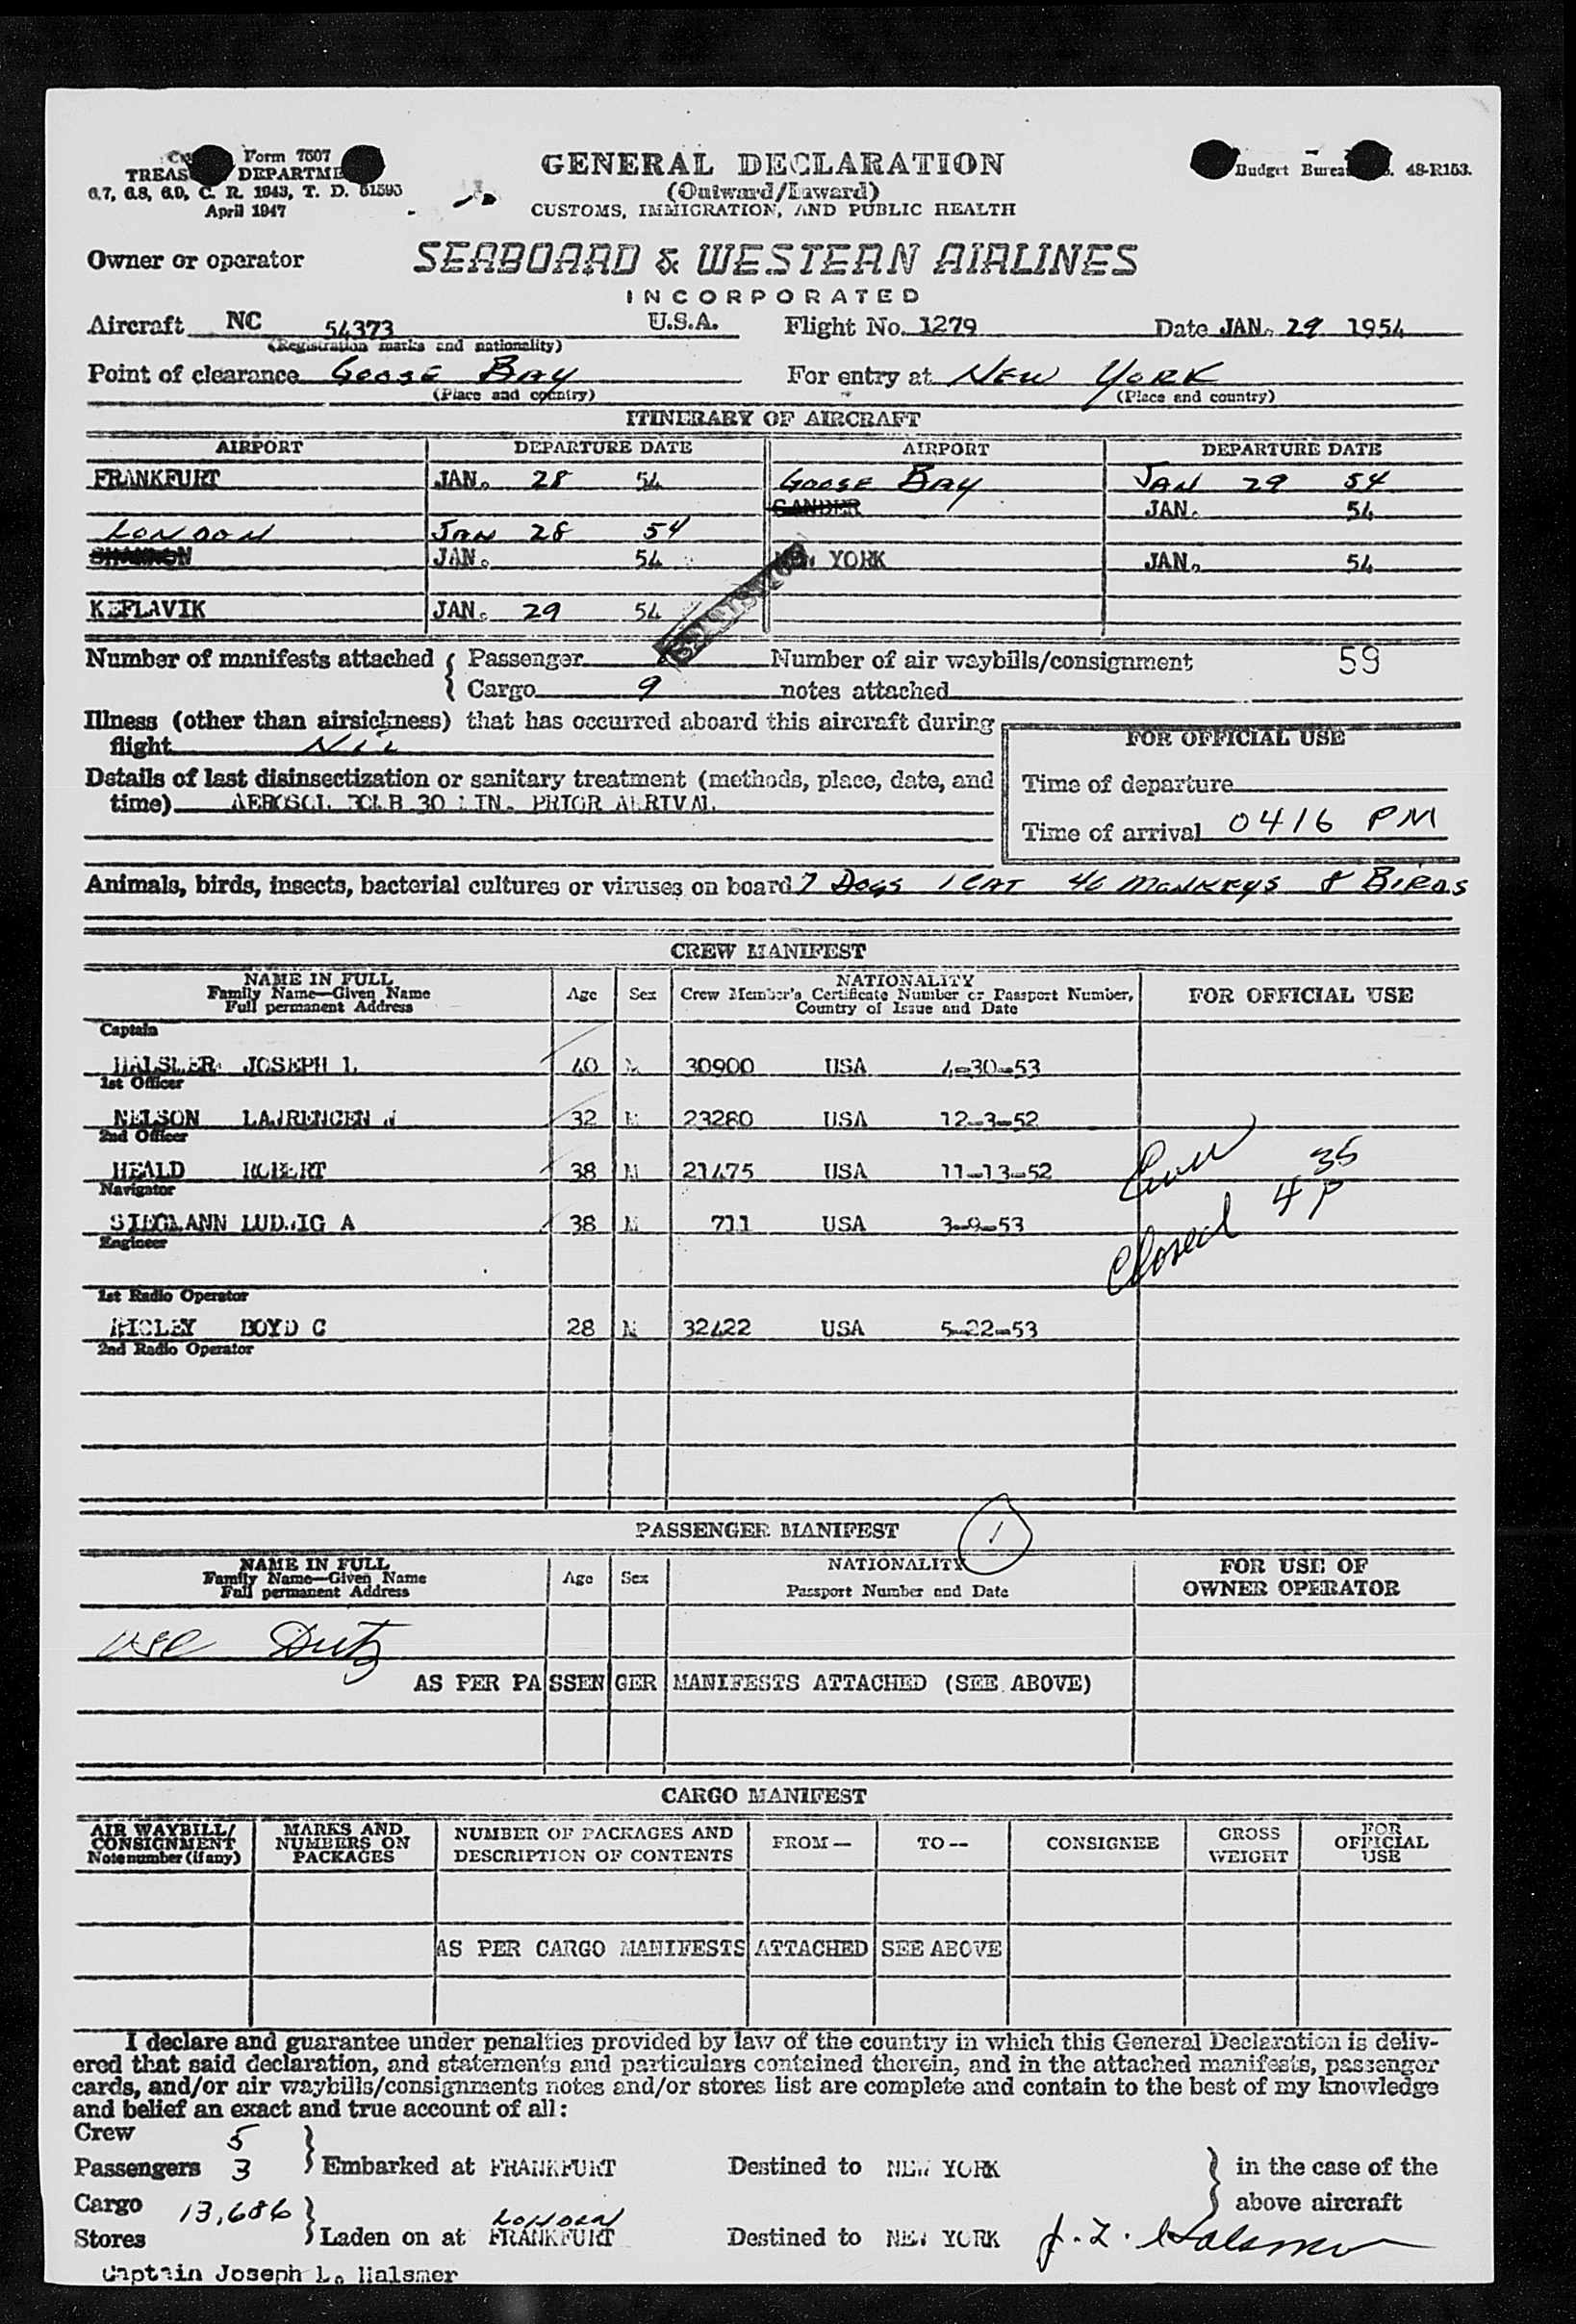 Form 7507
TREAS DEPARTME
6.7, 6.8, 6.9, C. R. 1943, T. D. 51593
April 1947
GENERAL DECLARATION
(Outward/Inward)
CUSTOMS, IMMIGRATION, AND PUBLIC HEALTH
Budget Bureau 48-R153.
Owner or operator SEABOARD & WESTERN AIRLINES
INCORPORATED
Aircraft NC 54373 U.S.A. Flight No. 1279 Date JAN. 29 1954
(Registration marks and nationality)
Point of clearance GOOSE BAY For entry at NEW YORK
(Place and country) (Place and country)
ITINERARY OF AIRCRAFT
AIRPORT DEPARTURE DATE AIRPORT DEPARTURE DATE
FRANKFURT JAN. 28 54 GOOSE BAY JAN 29 54
GANDER JAN. 54
LONDON JAN 28 54
SHANNON JAN. 54 YORK JAN. 54
KEFLAVIK JAN. 29 54
Number of manifests attached { Passenger Number of air waybills/consignment 59
Cargo 9 notes attached
Illness (other than airsickness) that has occurred aboard this aircraft during
flight NIL
FOR OFFICIAL USE
Details of last disinsectization or sanitary treatment (methods, place, date, and
time) AEROSOL BOMB 30 MIN. PRIOR ARRIVAL
Time of departure
Time of arrival 0416 PM
Animals, birds, insects, bacterial cultures or viruses on board 7 DOGS 1 CAT 46 MONKEYS 8 BIRDS
CREW MANIFEST
NAME IN FULL
Family Name—Given Name
Full permanent Address
Age Sex
NATIONALITY
Crew Member's Certificate Number or Passport Number,
Country of Issue and Date
FOR OFFICIAL USE
Captain
HALSMER JOSEPH L 40 M 30900 USA 4-30-53
1st Officer
NELSON LAWRENCEN W 32 M 23280 USA 12-3-52
2nd Officer
HEALD ROBERT 38 M 21475 USA 11-13-52
Navigator
SIEGMANN LUDWIG A 38 M 711 USA 3-9-53
Engineer
Closed 4 35 P
1st Radio Operator
BOYD C 28 M 32422 USA 5-22-53
2nd Radio Operator
PASSENGER MANIFEST 1
NAME IN FULL
Family Name—Given Name
Full permanent Address
Age Sex
NATIONALITY
Passport Number and Date
FOR USE OF
OWNER OPERATOR
AS PER PASSENGER MANIFESTS ATTACHED (SEE ABOVE)
CARGO MANIFEST
AIR WAYBILL/
CONSIGNMENT
Note number (if any)
MARKS AND
NUMBERS ON
PACKAGES
NUMBER OF PACKAGES AND
DESCRIPTION OF CONTENTS
FROM—
TO—
CONSIGNEE
GROSS
WEIGHT
FOR
OFFICIAL
USE
AS PER CARGO MANIFESTS ATTACHED SEE ABOVE
I declare and guarantee under penalties provided by law of the country in which this General Declaration is deliv-
ered that said declaration, and statements and particulars contained therein, and in the attached manifests, passenger
cards, and/or air waybills/consignments notes and/or stores list are complete and contain to the best of my knowledge
and belief an exact and true account of all:
Crew 5
Passengers 3 } Embarked at FRANKFURT Destined to NEW YORK } in the case of the
Cargo 13,686 above aircraft
LONDON
Stores } Laden on at FRANKFURT Destined to NEW YORK J. L. Halsmer
Captain Joseph L. Halsmer